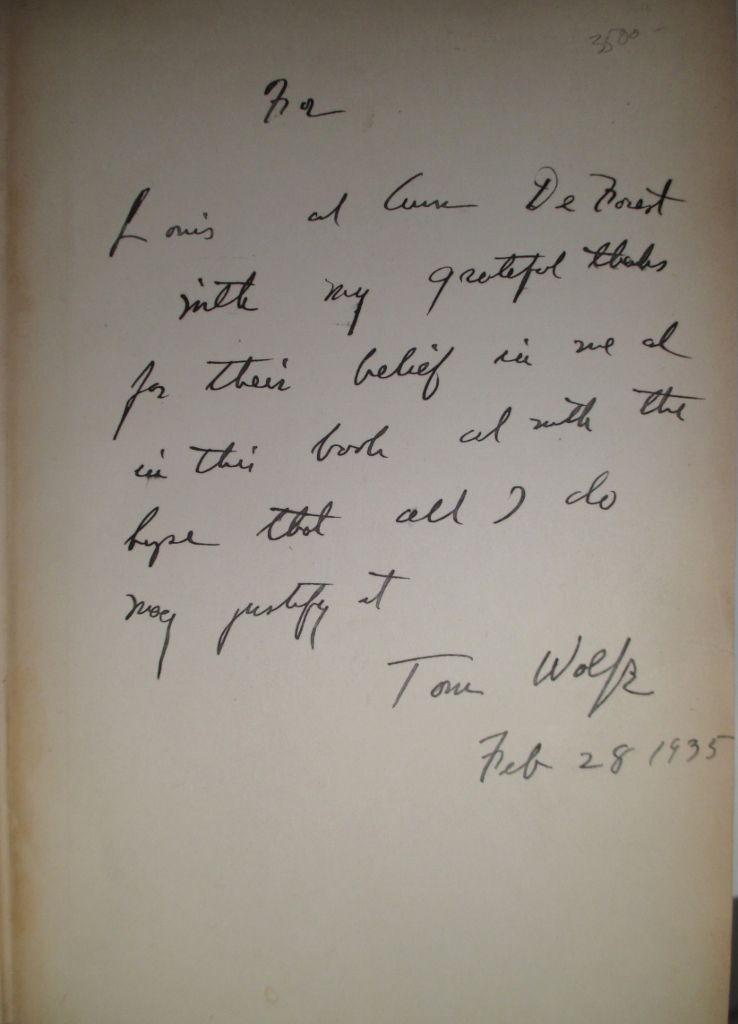 3500 -
For
Louis and Anne De Forest
with my grateful thanks
for their belief in me and
in this book and with the
hope that all I do
may justify it
Tom Wolfe
Feb 28 1935